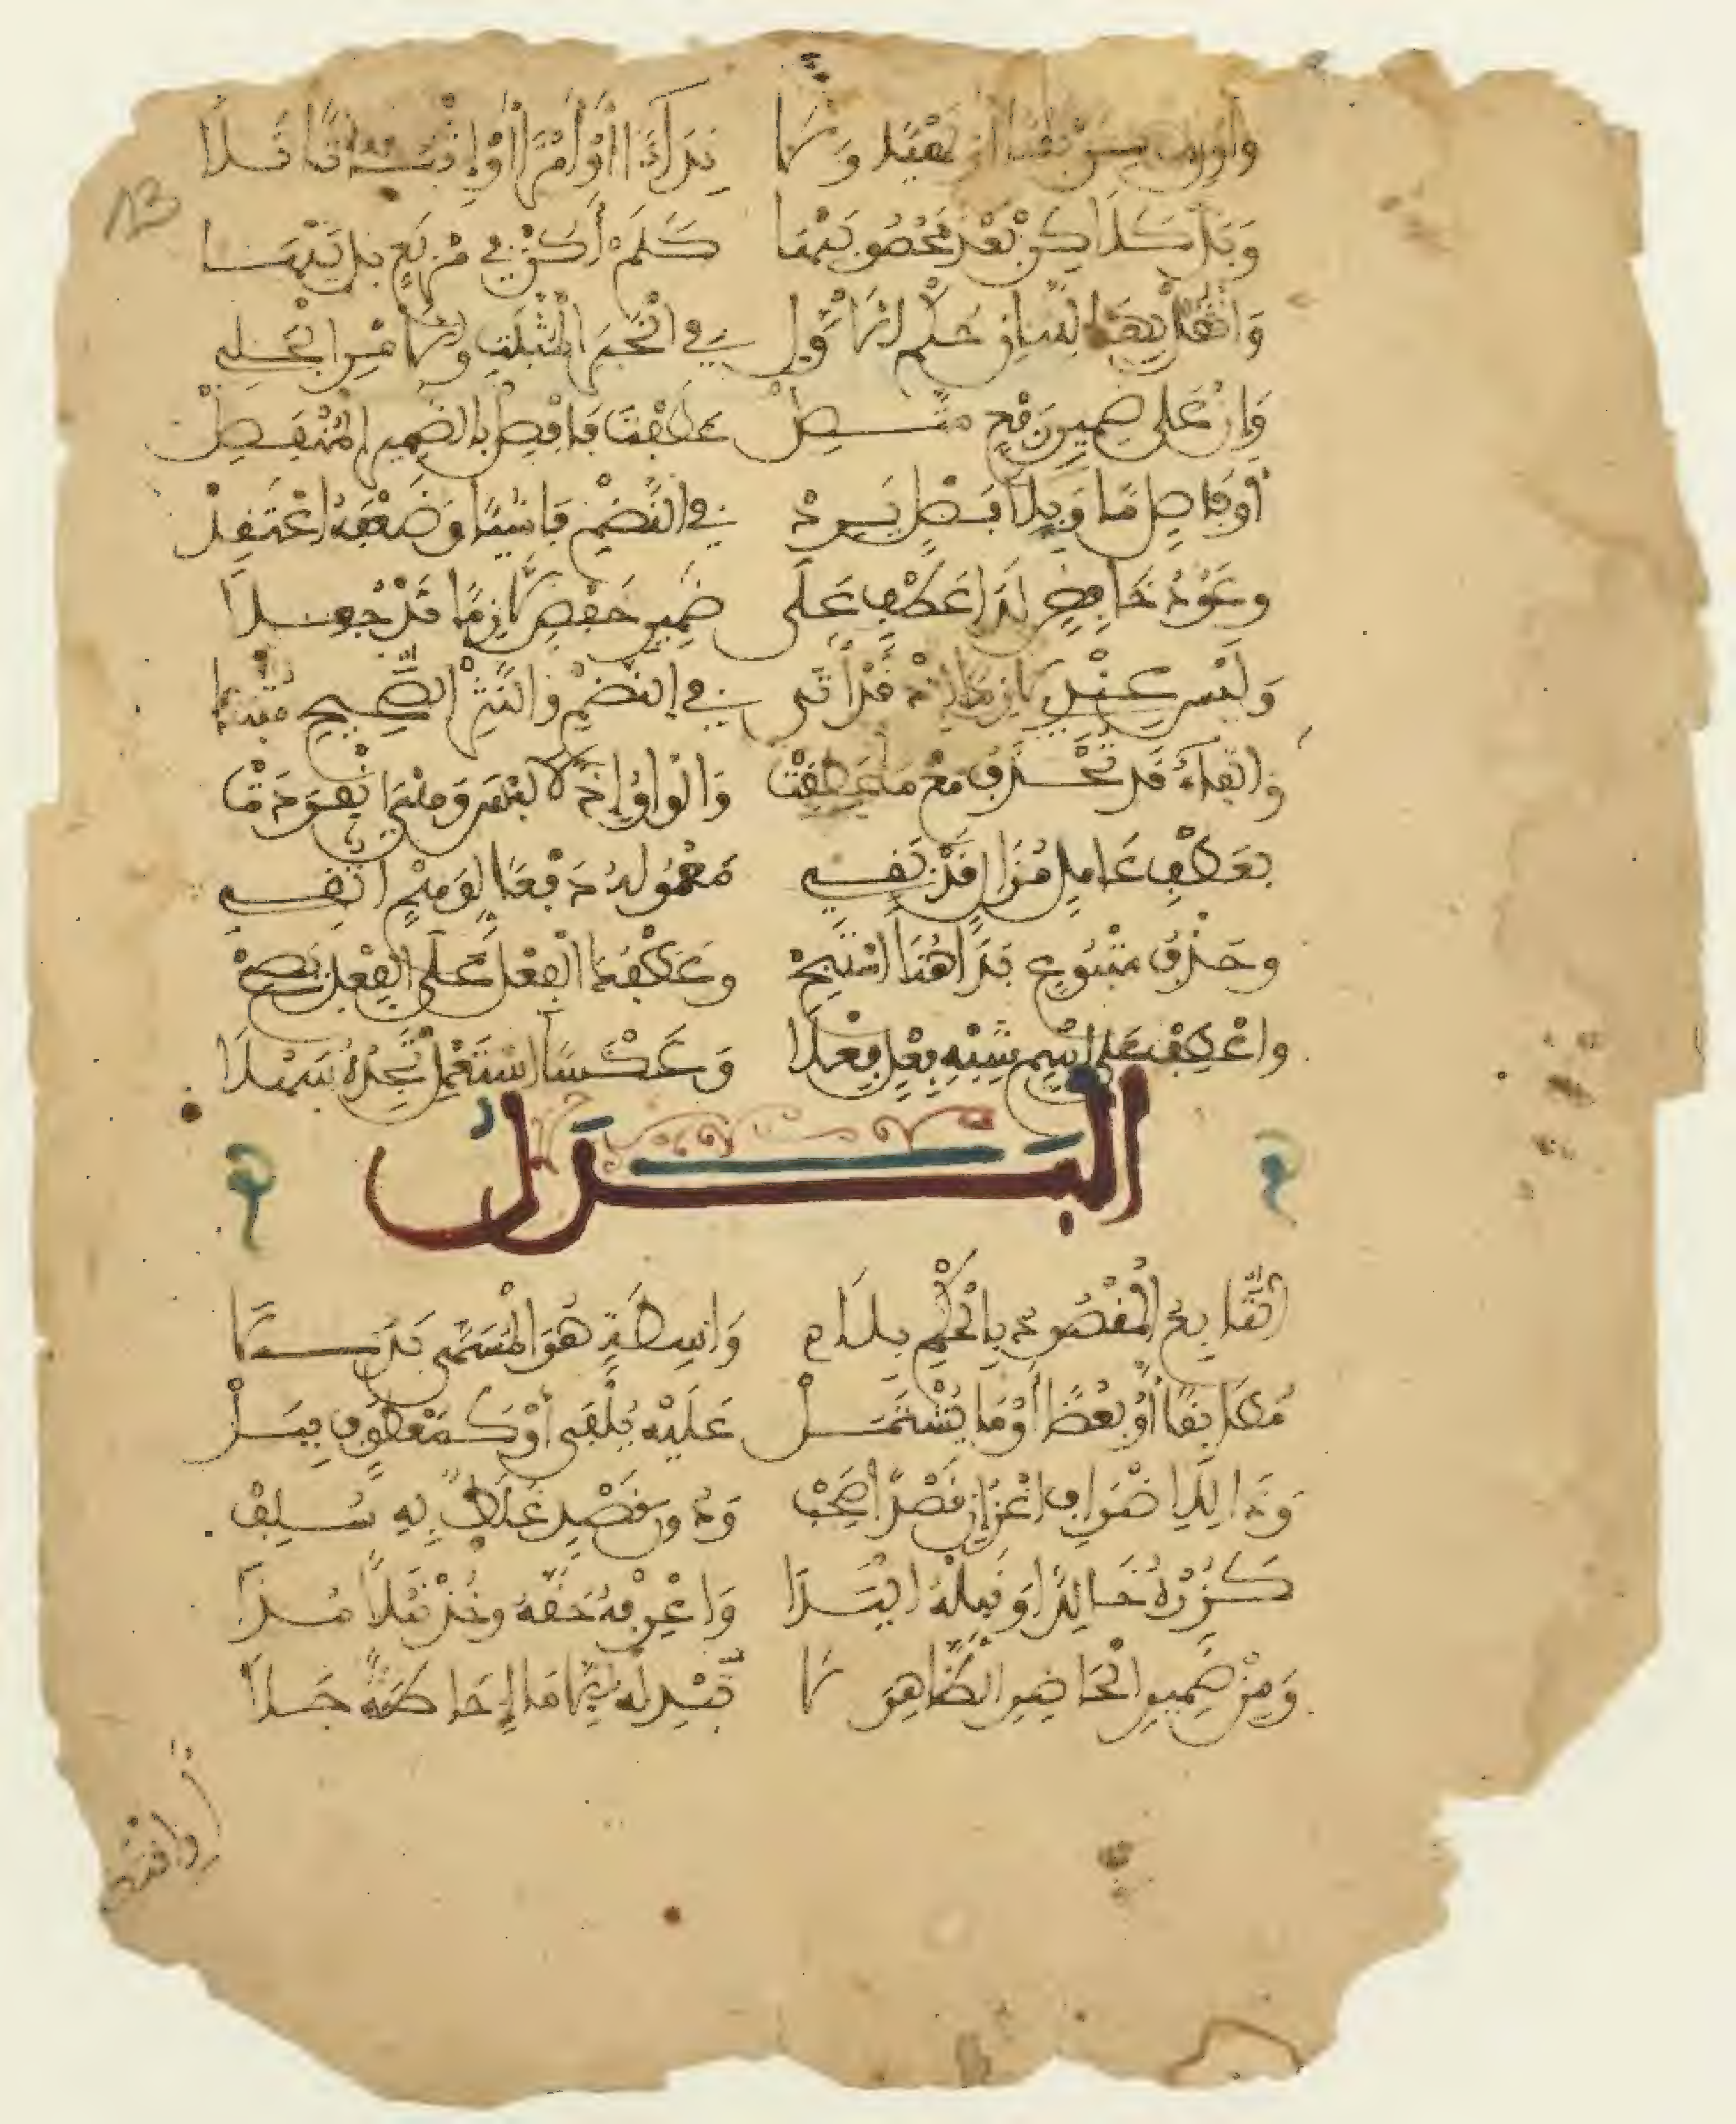 13
وَأَوْلِ لٰكِنْ نَفْيًا أَوْ نَهْيًا وَلَا نِدَاءً أَوْ أَمْرًا أَوْ إِثْبَاتًا تَلَا
وَبَلْ كَلٰكِنْ بَعْدَ مَصْحُوبَيْهَا كَلَمْ أَكُنْ فِي مَرْبَعٍ بَلْ تَيْهَا
وَانْقُلْ بِهَا لِلثَّانِ حُكْمَ الْأَوَّلِ فِي الْخَبَرِ الْمُثْبَتِ وَالْأَمْرِ الْجَلِي
وَإِنْ عَلَى ضَمِيرِ رَفْعٍ مُتَّصِلْ عَطَفْتَ فَافْصِلْ بِالضَّمِيرِ الْمُنْفَصِلْ
أَوْ فَاصِلٍ مَا وَبِلَا فَصْلٍ يَرِدْ فِي النَّظْمِ فَاشِيًا وَضَعْفَهُ اعْتَقِدْ
وَعَوْدُ خَافِضٍ لَدَا عَطْفٍ عَلَى ضَمِيرِ خَفْضٍ لَازِمًا قَدْ جُعِلَا
وَلَيْسَ عِنْدِي لَازِمًا إِذْ قَدْ أَتَى فِي النَّظْمِ وَالنَّثْرِ الصَّحِيحِ مُثْبَتَا
وَالْفَاءُ قَدْ تُحْذَفُ مَعْ مَا عَطَفَتْ وَالْوَاوُ إِذْ لَا لَبْسَ وَهْيَ انْفَرَدَتْ
بِعَطْفِ عَامِلٍ مُزَالٍ قَدْ بَقِي مَعْمُولُهُ دَفْعًا لِوَهْمٍ اتُّقِي
وَحَذْفُ مَتْبُوعٍ بَدَا هُنَا اسْتَبِحْ وَعَطْفُكَ الْفِعْلَ عَلَى الْفِعْلِ يَصِحْ
وَاعْطِفْ عَلَى اسْمِ شِبْهِ فِعْلٍ فِعْلَا وَعَكْسًا اسْتَعْمِلْ تَجِدْهُ سَهْلَا
الْبَدَلُ
التَّابِعُ الْمَقْصُودُ بِالْحُكْمِ بِلَا وَاسِطَةٍ هُوَ الْمُسَمَّى بَدَلَا
مُطَابِقًا أَوْ بَعْضًا أَوْ مَا يَشْتَمِلْ عَلَيْهِ يُلْفَى أَوْ كَمَعْطُوفٍ بِبَلْ
وَذَا لِلِاضْرَابِ اعْزُ إِنْ قَصْدًا صَحِبْ وَدُونَ قَصْدٍ غَلَطٌ بِهِ سُلِبْ
كَزُرْهُ خَالِدًا وَقَبِّلْهُ الْيَدَا وَاعْرِفْهُ حَقَّهُ وَخُذْ نَبْلًا مُدَا
وَمِنْ ضَمِيرِ الْحَاضِرِ الظَّاهِرَ لَا تُبْدِلْهُ إِلَّا مَا إِحَاطَةً جَلَا
أَوِ اقْتَضَى